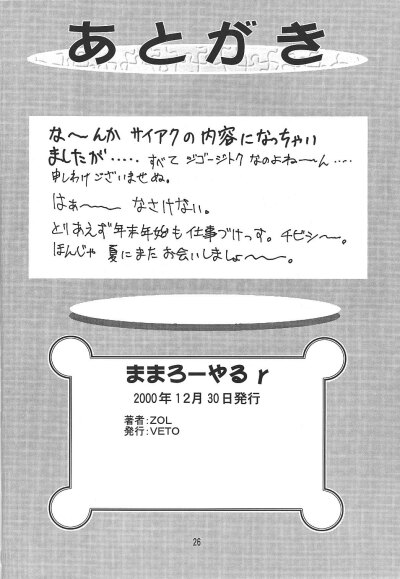 あとがき
な〜んか サイアクの内容になっちゃい
ましたが..... すべて ジゴージトク なのよね〜ん....
申しわけございませぬ。
はぁ〜〜〜 なさけない。
とりあえず年末年始も仕事づけっす。チビシ〜。
ほんじゃ 夏にまたお会いしましょ〜〜〜。
ままろーやる r
2000年12月30日発行
著者:ZOL
発行:VETO
26